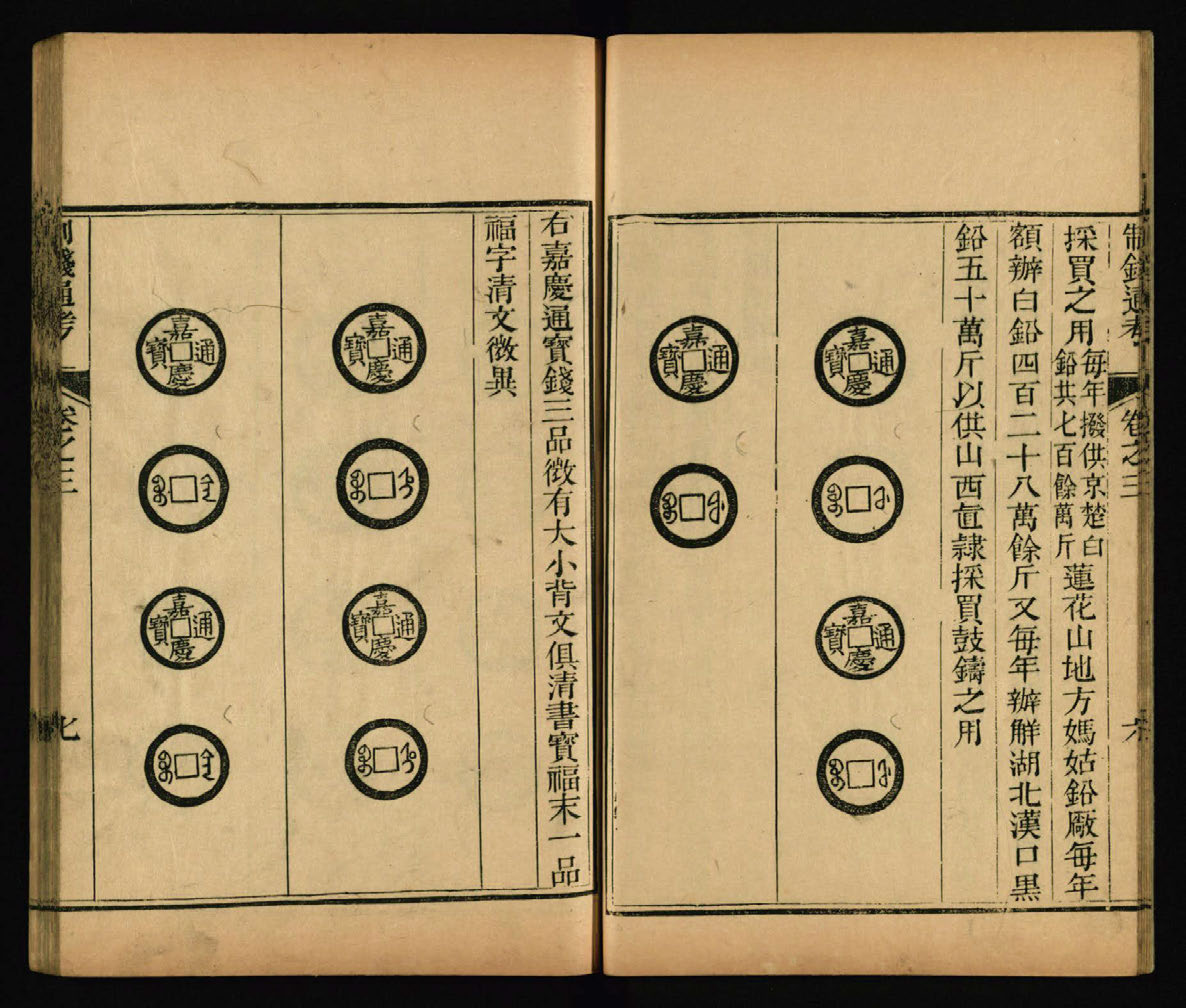 制錢通考
卷之三
六
採買之用每年撥供京楚白
鉛共七百餘萬斤蓮花山地方媽姑鉛厰每年
額辦白鉛四百二十八萬餘斤又每年辦觧湖北漢口黑
鉛五十萬斤以供山西直隸採買鼓鑄之用
嘉慶通寶
嘉慶通寶
嘉慶通寶
右嘉慶通寶錢三品微有大小背文俱清書寶福末一品
福字清文微異
嘉慶通寶
嘉慶通寶
嘉慶通寶
嘉慶通寶
制錢通考
卷之三
七